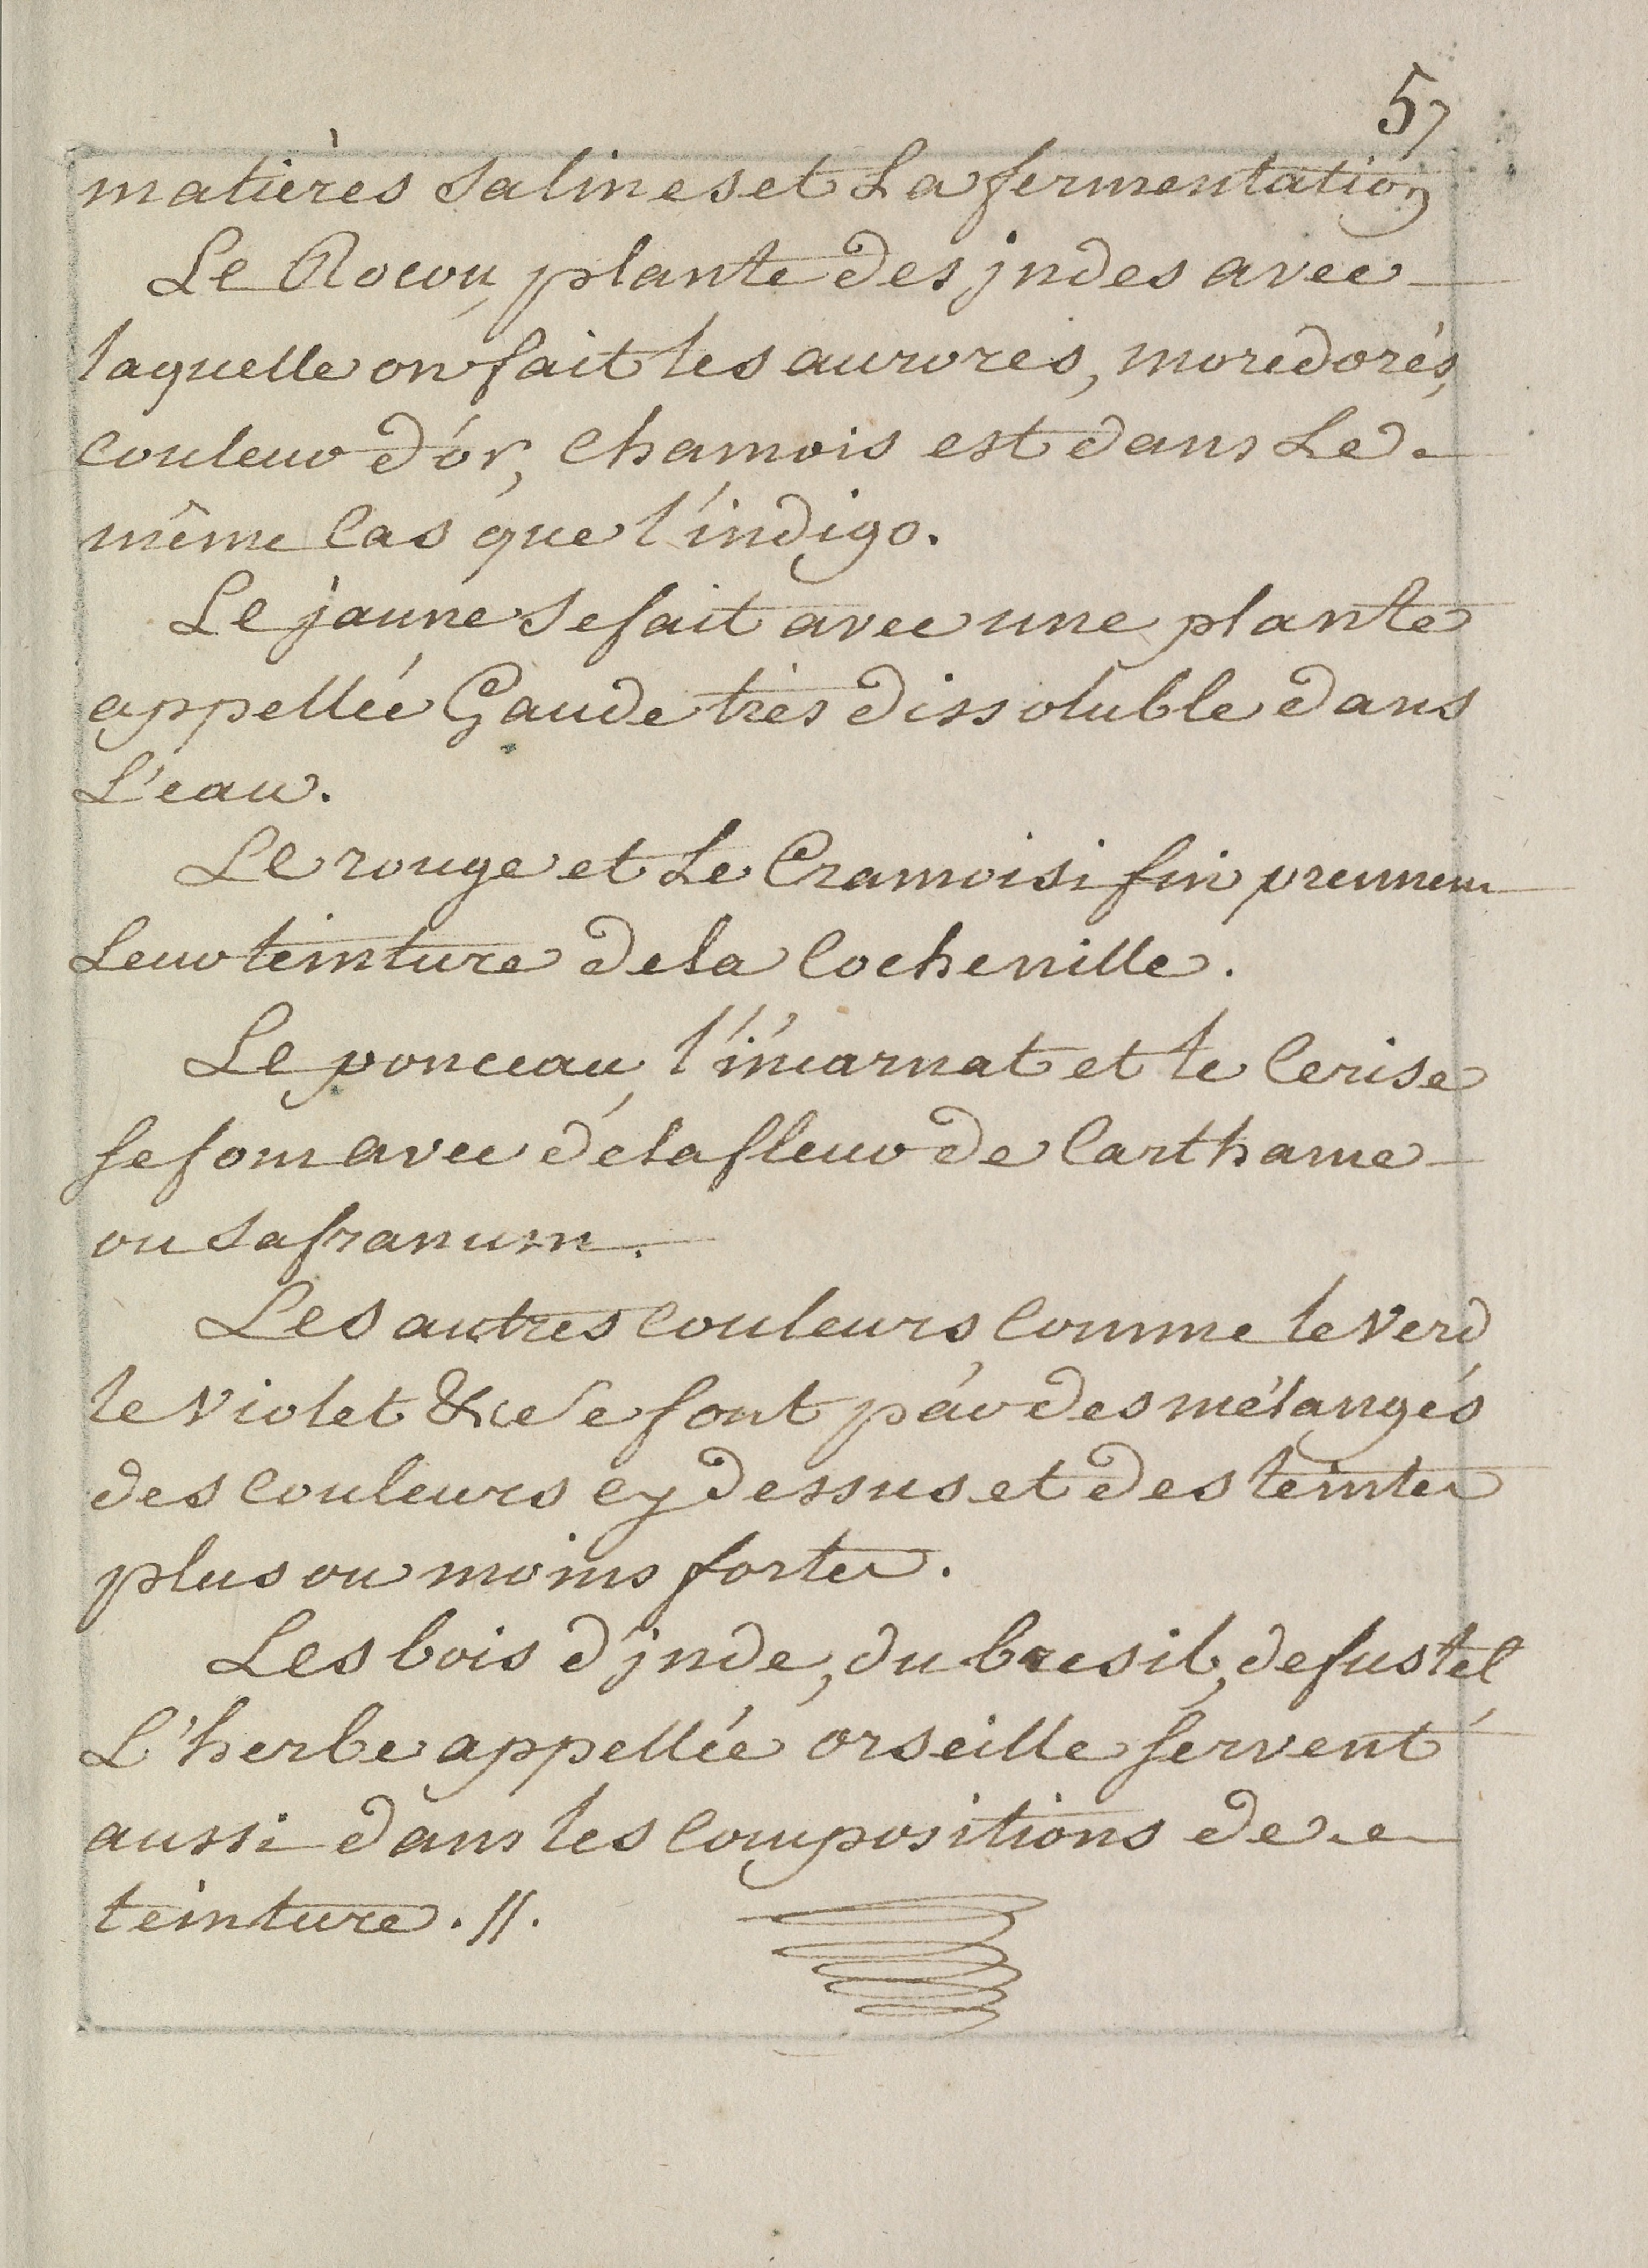 57
matières salines et La fermentation
Le Rocou, plante des jndes avec
laquelle on fait les aurores, moredorés,
couleur d'or, chamois est dans Le
même Cas que l'indigo.
Le jaune se fait avec une plante
appellée Gaude très dissoluble dans
L'eau.
Le rouge et Le Cramoisi fin prennent
Leur teinture de la Cochenille.
Le ponceau, l'incarnat et le Cerise
se font avec de la fleur de Carthame
ou safranum.
Les autres couleurs comme le Verd
le Violet &c se font par des mélanges
des couleurs cy dessus et des teintes
plus ou moins fortes.
Les bois d'jnde, du bresil, de fustel
L'herbe appellée orseille servent
aussi dans les Compositions de
teinture. //.